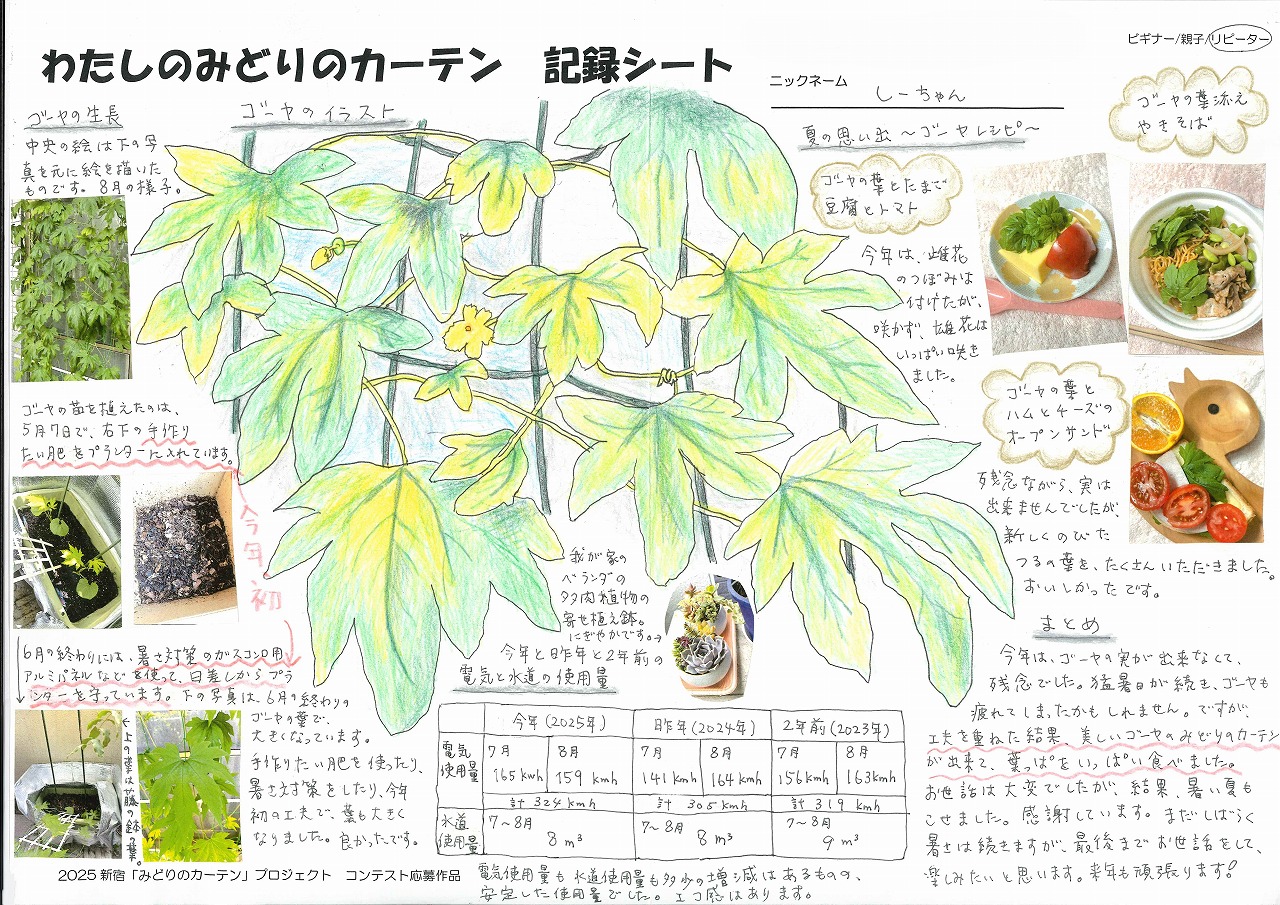 わたしのみどりのカーテン 記録シート
ビギナー/親子/リピーター
ニックネーム
しーちゃん
ゴーヤの生長
中央の絵は下の写
真を元に絵を描いた
ものです。8月の様子。
ゴーヤのイラスト
ゴーヤの苗を植えたのは、
5月7日で、右下の手作り
たい肥をプランターに入れています。
今年初
6月の終わりには、暑さ対策のガスコンロ用
アルミパネルなどを使って、日差しからプラ
ンターを守っています。下の写真は、6月の終わりの
ゴーヤの葉で、
大きくなっています。
手作りたい肥を使ったり、
暑さ対策をしたり、今年
初の工夫で、葉も大きく
なりました。良かったです。
↑上の葉は藤の鉢の葉。
夏の思い出～ゴーヤレシピ～
ゴーヤの葉とたまご
豆腐とトマト
ゴーヤの葉添え
やきそば
今年は、雌花
のつぼみは
付けたが、
咲かず、雄花は
いっぱい咲き
ました。
ゴーヤの葉と
ハムとチーズの
オープンサンド
残念ながら、実は
出来ませんでしたが、
新しくのびた
つるの葉を、たくさんいただきました。
おいしかったです。
我が家の
ベランダの
多肉植物の
寄せ植え鉢。
にぎやかです。→
今年と昨年と2年前の
電気と水道の使用量
今年(2025年) 昨年(2024年) 2年前(2023年)
電気使用量 7月 165kwh 8月 159kmh 7月 141kmh 8月 164kwh 7月 156kmh 8月 163kmh
計 324kmh 計 305kmh 計 319kmh
水道使用量 7～8月 8m³ 7～8月 8m³ 7～8月 9m³
電気使用量も水道使用量も多少の増減はあるものの、
安定した使用量でした。エコ感はあります。
まとめ
今年は、ゴーヤの実が出来なくて、
残念でした。猛暑日が続き、ゴーヤも
疲れてしまったかもしれません。ですが、
工夫を重ねた結果、美しいゴーヤのみどりのカーテン
が出来て、葉っぱをいっぱい食べました。
お世話は大変でしたが、結果、暑い夏も
こせました。感謝しています。まだしばらく
暑さは続きますが、最後までお世話をして、
楽しみたいと思います。来年も頑張ります!
2025 新宿「みどりのカーテン」プロジェクト コンテスト応募作品